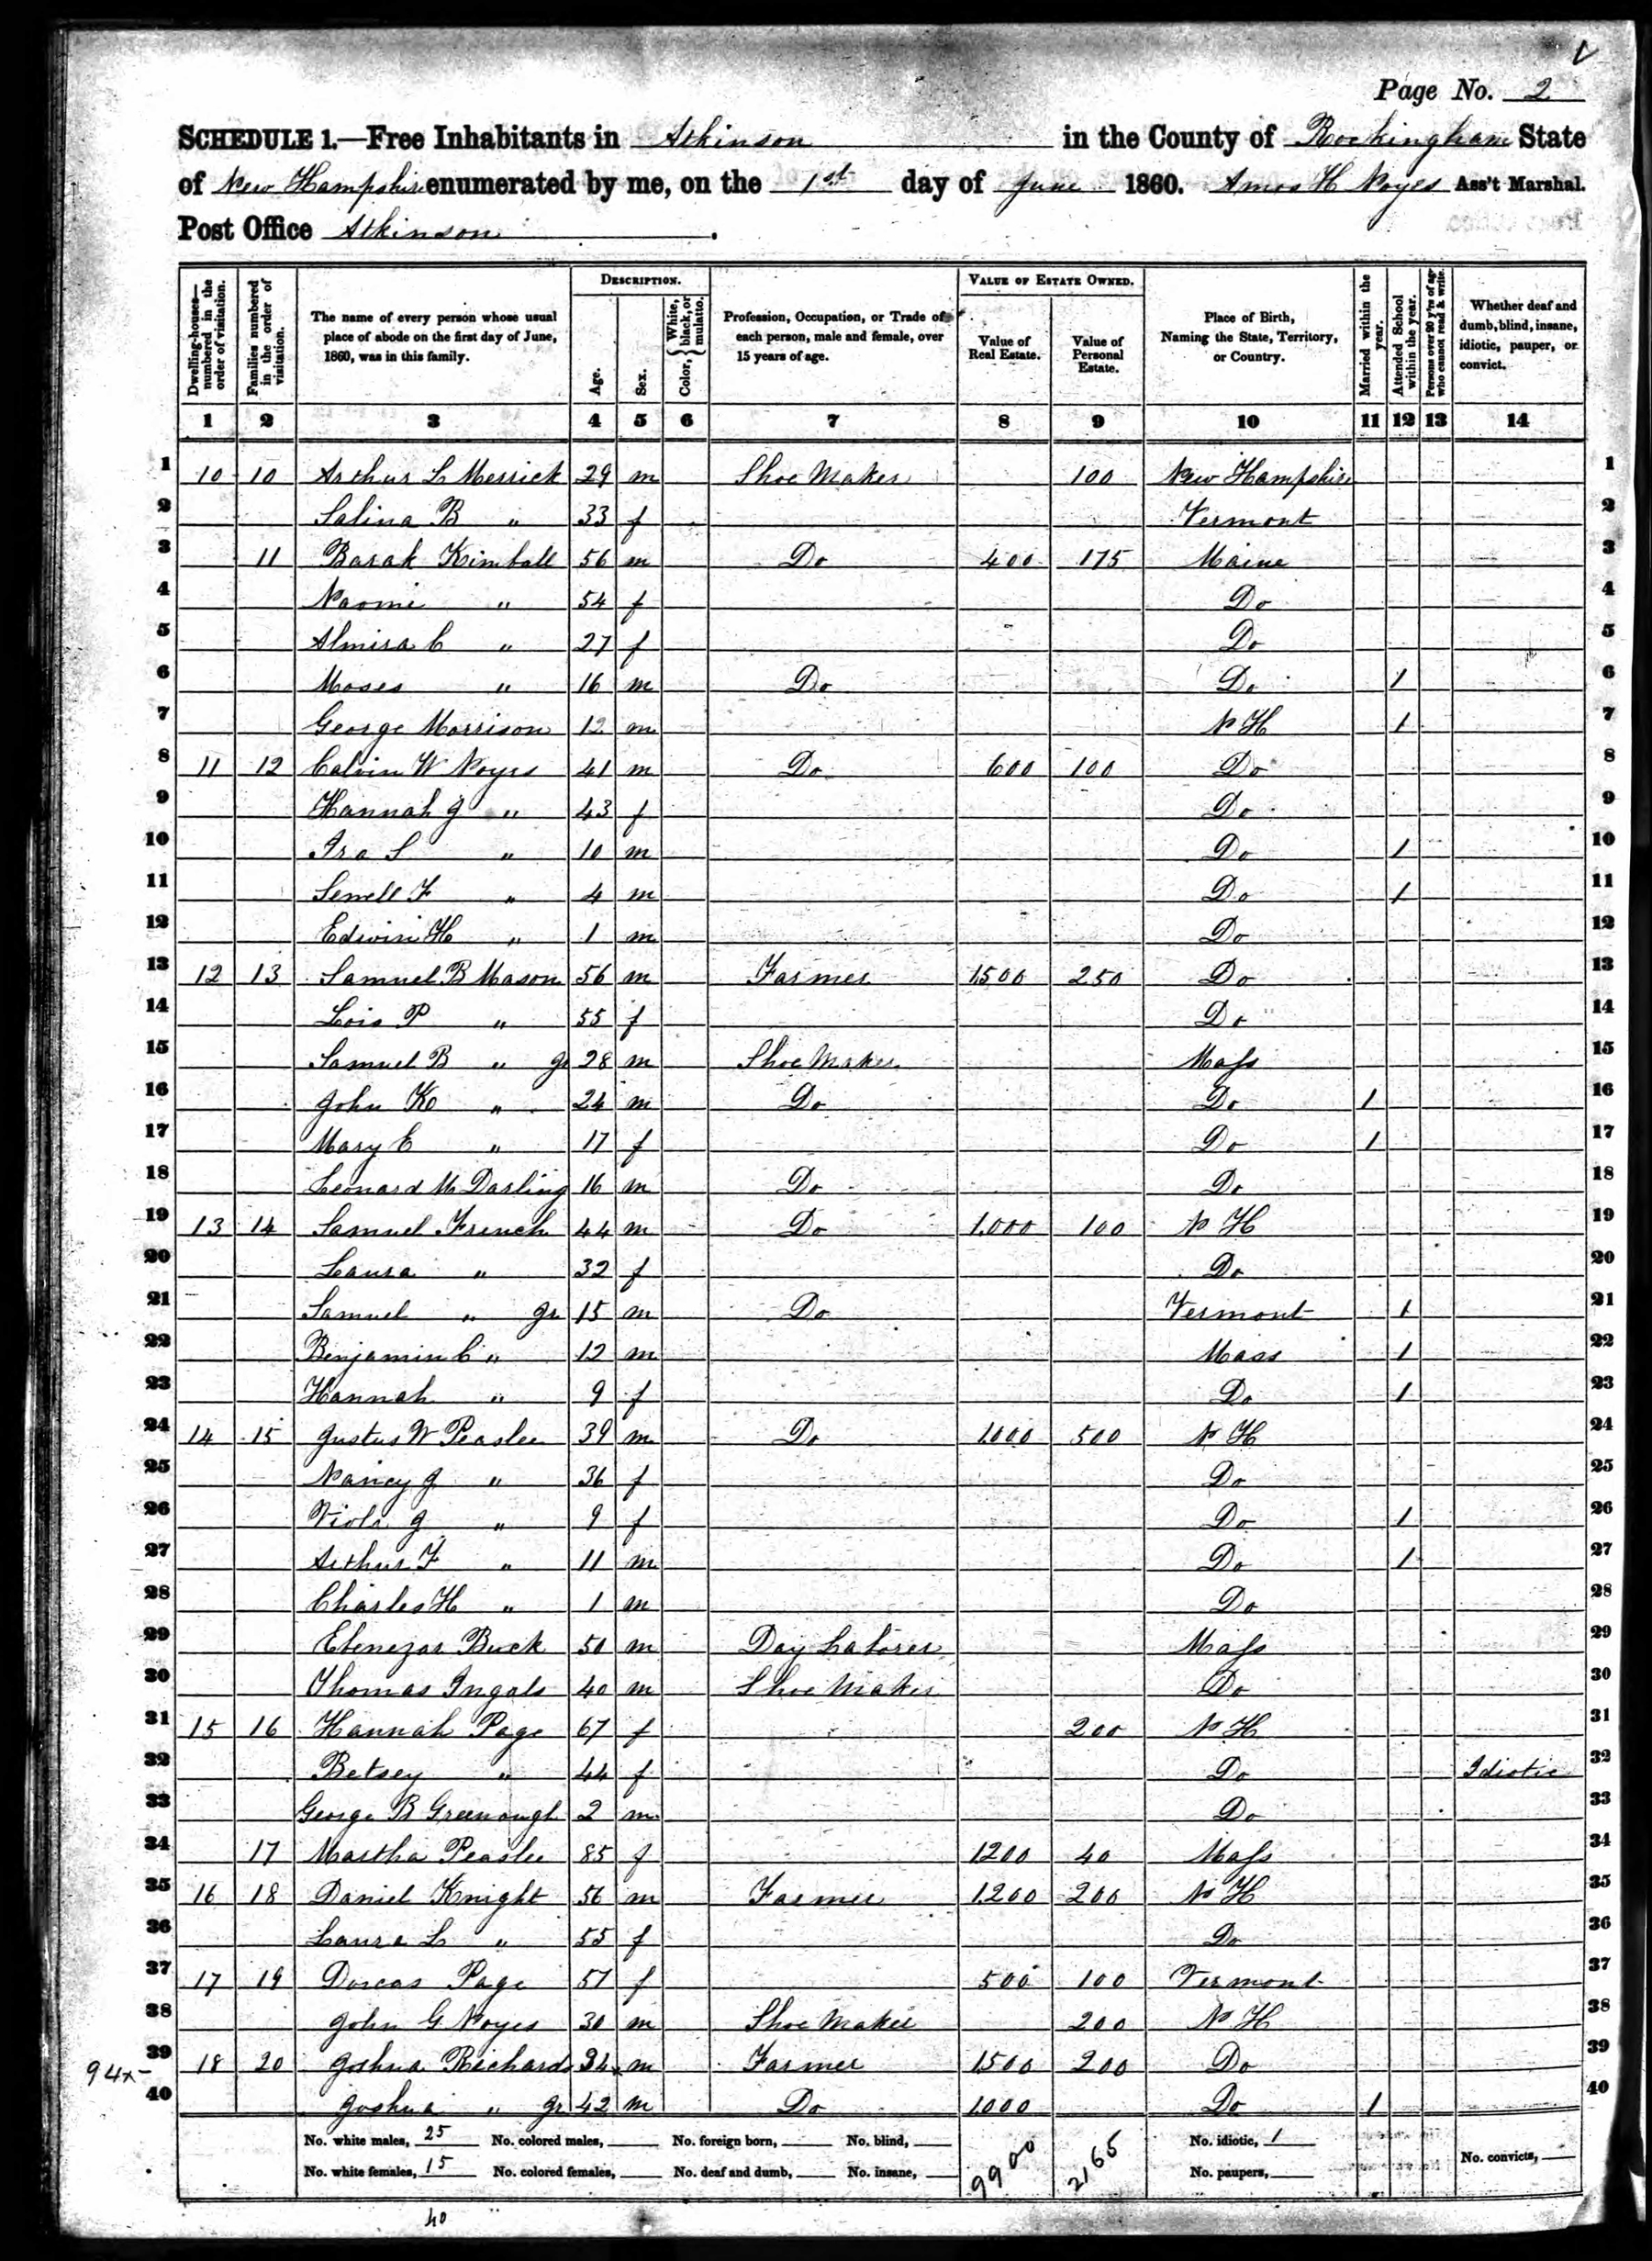 Page No. 2
SCHEDULE 1.—Free Inhabitants in Atkinson in the County of Rockingham State
of New Hampshire enumerated by me, on the 1st day of June 1860. Amos H Noyes Ass't Marshal.
Post Office Atkinson.
Dwelling-houses—numbered in the order of visitation. Families numbered in the order of visitation. The name of every person whose usual place of abode on the first day of June, 1860, was in this family. DESCRIPTION. Age. Sex. Color, {White, black, or mulatto. Profession, Occupation, or Trade of each person, male and female, over 15 years of age. VALUE OF ESTATE OWNED. Value of Real Estate. Value of Personal Estate. Place of Birth, Naming the State, Territory, or Country. Married within the year. Attended School within the year. Persons over 20 y'rs of age who cannot read & write. Whether deaf and dumb, blind, insane, idiotic, pauper, or convict.
1 2 3 4 5 6 7 8 9 10 11 12 13 14
1 10 10 Arthur L Merrick 29 m Shoe Maker 100 New Hampshire 1
2 Salina B " 33 f Vermont 2
3 11 Barak Kimball 56 m Do 400 175 Maine 3
4 Naomi " 54 f Do 4
5 Almira C " 27 f Do 5
6 Moses " 16 m Do Do 1 6
7 George Morrison 12 m N H 1 7
8 11 12 Calvin W Noyes 41 m Do 600 100 Do 8
9 Hannah J " 43 f Do 9
10 Ira S " 10 m Do 1 10
11 Sewell F " 4 m Do 1 11
12 Edwin H " 1 m Do 12
13 12 13 Samuel B Mason 56 m Farmer 1500 250 Do 13
14 Lois P " 55 f Do 14
15 Samuel B " Jr 28 m Shoe Maker Mass 15
16 John K " 24 m Do Do 1 16
17 Mary E " 17 f Do 1 17
18 Leonard M Darling 16 m Do Do 18
19 13 14 Samuel French 44 m Do 1.000 100 N H 19
20 Laura " 32 f Do 20
21 Samuel " Jr 15 m Do Vermont 1 21
22 Benjamin C " 12 m Mass 1 22
23 Hannah " 9 f Do 1 23
24 14 15 Justus W Peaslee 39 m Do 1000 500 N H 24
25 Nancy J " 36 f Do 25
26 Viola J " 9 f Do 1 26
27 Arthur F " 11 m Do 1 27
28 Charles H " 1 m Do 28
29 Ebenezar Buck 50 m Day Laborer Mass 29
30 Thomas Ingals 40 m Shoe Maker Do 30
31 15 16 Hannah Page 67 f 200 N H 31
32 Betsey " 44 f Do Idiotic 32
33 George B Greenough 2 m Do 33
34 17 Martha Peaslee 85 f 1200 40 Mass 34
35 16 18 Daniel Knight 56 m Farmer 1.200 200 N H 35
36 Laura L " 55 f Do 36
37 17 19 Dorcas Page 57 f 500 100 Vermont 37
38 John G Noyes 30 m Shoe Maker 200 N H 38
39 18 20 Joshua Richards 94 m Farmer 1500 200 Do 39
94x-
40 Joshua " Jr 42 m Do 1.000 Do 1 40
No. white males, 25 No. colored males, No. foreign born, No. blind, 9900 2165 No. idiotic, 1
No. white females, 15 No. colored females, No. deaf and dumb, No. insane, No. paupers, No. convicts,
40